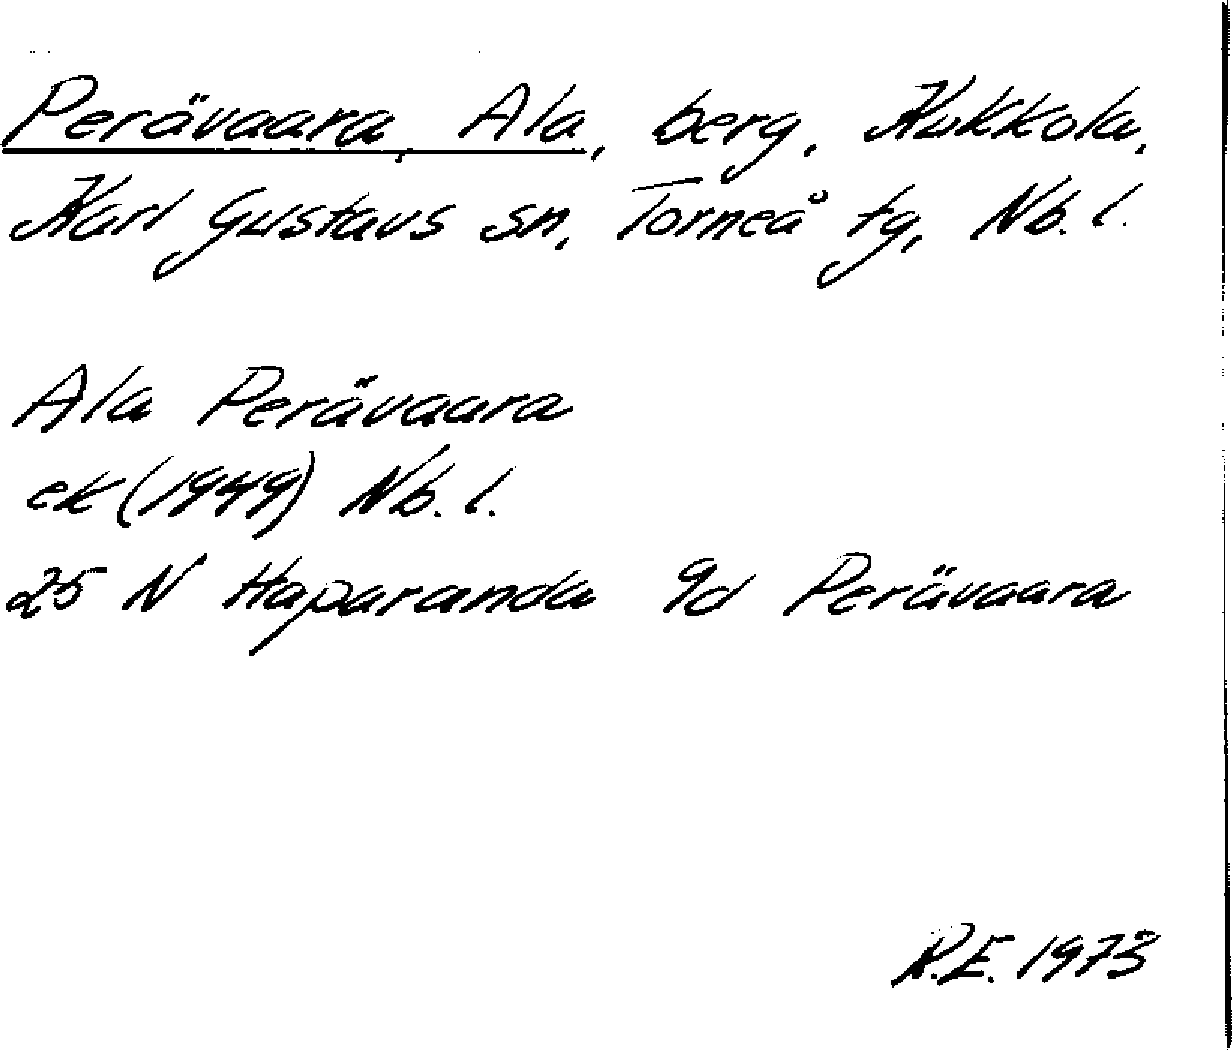 Perävaara, Ala, berg, Kukkola,
Karl Gustavs sn, Torneå tg, Nb. l.
Ala Perävaara
ek (1949) Nb. l.
25 N Haparanda 9d Perävaara
R.E. 1973